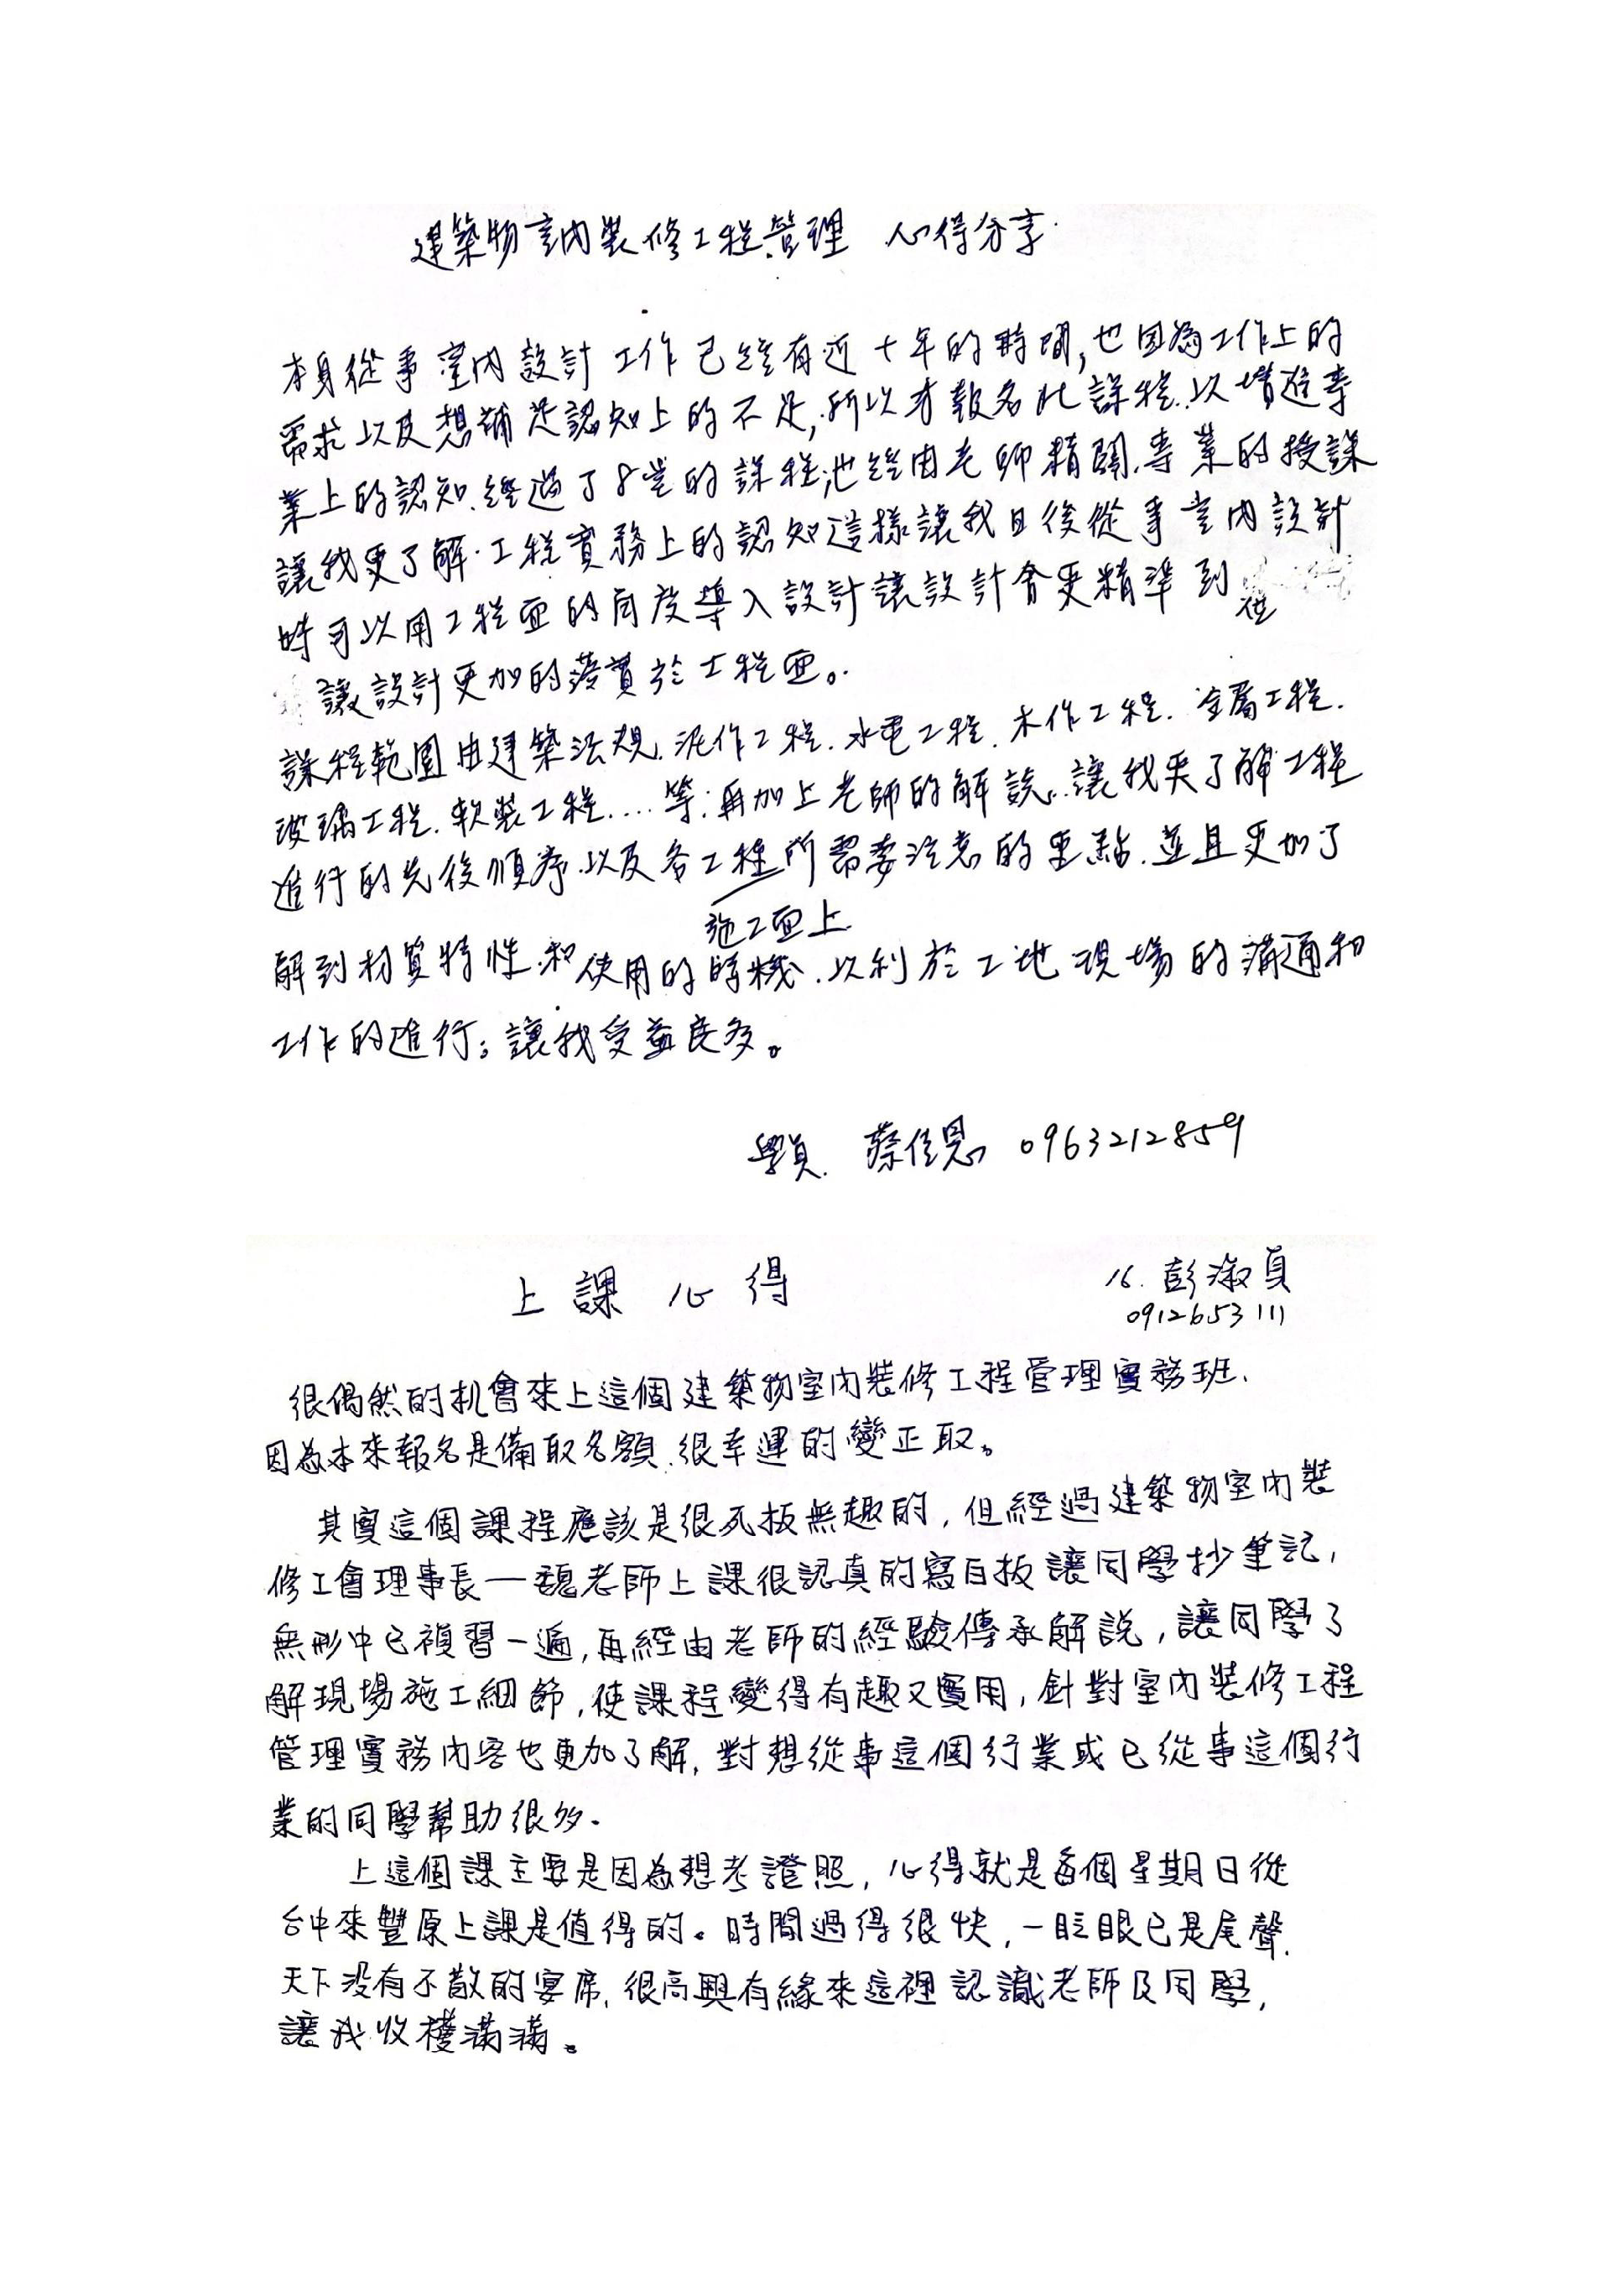 建築物室內裝修工程管理 心得分享.
本身從事室內設計工作已經有近十年的時間,也因為工作上的
需求以及想補足認知上的不足,所以才報名此課程.以增進專
業上的認知.經過了8堂的課程,也經由老師精闢.專業的授課
讓我更了解.工程實務上的認知這樣讓我日後從事室內設計
時可以用工程面的角度導入設計讓設計會更精準到位
讓設計更加的落實於工程面。
課程範圍由建築法規.泥作工程.水電工程.木作工程.金屬工程.
玻璃工程.軟裝工程....等;再加上老師的解說..讓我更了解工程
進行的先後順序.以及各工種所需要注意的重點.並且更加了
施工面上.
解到材質特性.和使用的時機.以利於工地現場的溝通和
工作的進行。讓我受益良多。
學員. 蔡佳恩 0963212859
上課心得
16.彭淑貞
0912653111
很偶然的机會來上這個建築物室內裝修工程管理實務班、
因為本來報名是備取名額、很幸運的變正取。
其實這個課程應該是很死板無趣的,但經過建築物室內裝
修工會理事長—魏老師上課很認真的寫白板讓同學抄筆記,
無形中已複習一遍,再經由老師的經驗傳承解說,讓同學了
解現場施工細節,使課程變得有趣又實用,針對室內裝修工程
管理實務內容也更加了解,對想從事這個行業或已從事這個行
業的同學幫助很多.
上這個課主要是因為想考證照,心得就是每個星期日從
台中來豐原上課是值得的。時間過得很快,一眨眼已是尾聲、
天下沒有不散的宴席、很高興有緣來這裡認識老師及同學,
讓我收穫滿滿。